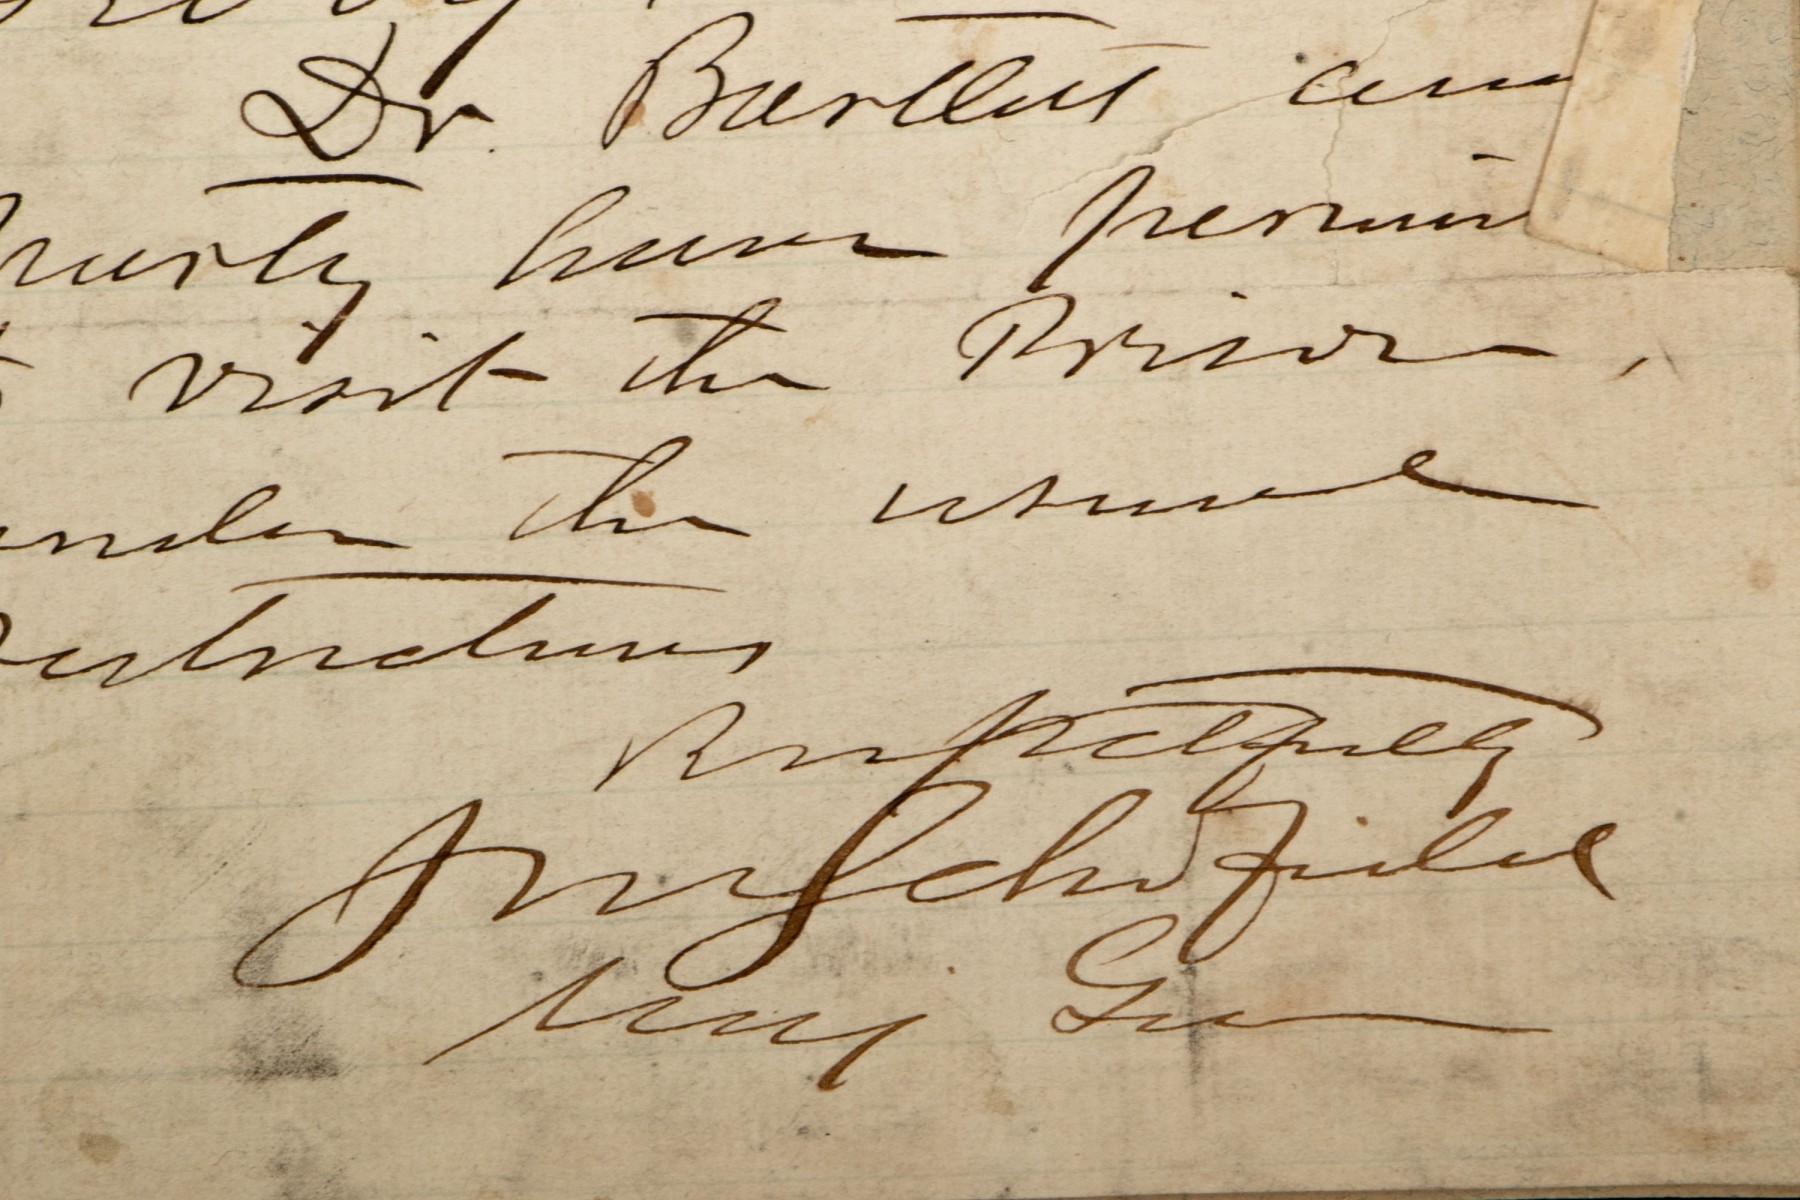 Dr. Bartlett and
party have permis
to visit the Prison,
under the usual
Restrictions
Respectfully
J M Schofield
Maj Gen